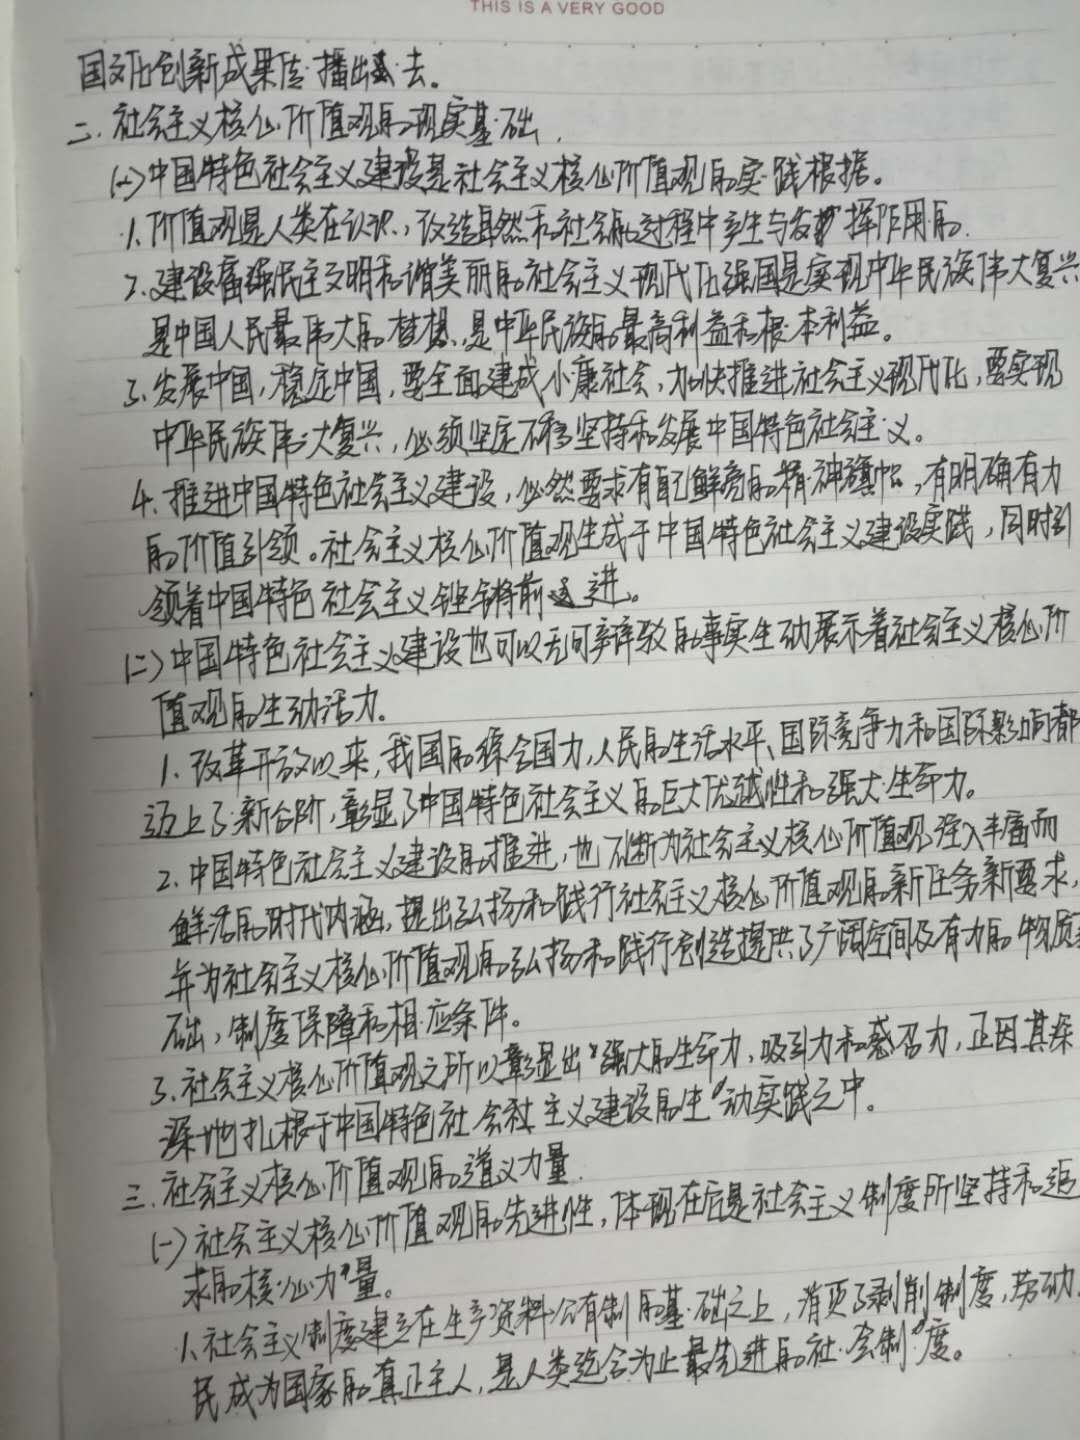 THIS IS A VERY GOOD
国文化创新成果传播出去。
二.社会主义核心价值观的现实基础.
(一)中国特色社会主义建设是社会主义核心价值观的实践根据。
1.价值观是人类在认识,改造自然和社会的过程中产生与发挥作用的.
2.建设富强民主文明和谐美丽的社会主义现代化强国是实现中华民族伟大复兴
是中国人民最伟大的梦想、是中华民族的最高利益和根本利益。
3.发展中国,稳定中国,要全面建成小康社会,加快推进社会主义现代化,要实现
中华民族伟大复兴,必须坚定不移坚持和发展中国特色社会主义。
4.推进中国特色社会主义建设,必然要求有自己鲜亮的精神旗帜,有明确有力
的价值引领。社会主义核心价值观生成于中国特色社会主义建设实践,同时引
领着中国特色社会主义铿锵前进。
(二)中国特色社会主义建设也可以无可辩驳的事实生动展示着社会主义核心价
值观的生动活力.
1.改革开放以来,我国的综合国力,人民的生活水平、国际竞争力和国际影响都
迈上了新台阶,彰显了中国特色社会主义的巨大优越性和强大生命力。
2.中国特色社会主义建设的推进,也不断为社会主义核心价值观注入丰富而
鲜活的时代内涵,提出弘扬和践行社会主义核心价值观的新任务新要求,
并为社会主义核心价值观的弘扬和践行创造提供了广阔空间及有力的物质基
础,制度保障和相应条件。
3.社会主义核心价值观之所以彰显出强大的生命力,吸引力和感召力,正因其深
深地扎根于中国特色社会主义建设的生动实践之中。
三.社会主义核心价值观的道义力量.
(一)社会主义核心价值观的先进性,体现在后是社会主义制度所坚持和追
求的核心力量。
1.社会主义制度建立在生产资料公有制的基础之上,消灭了剥削制度,劳动
民成为国家的真正主人,是人类迄今为止最先进的社会制度。